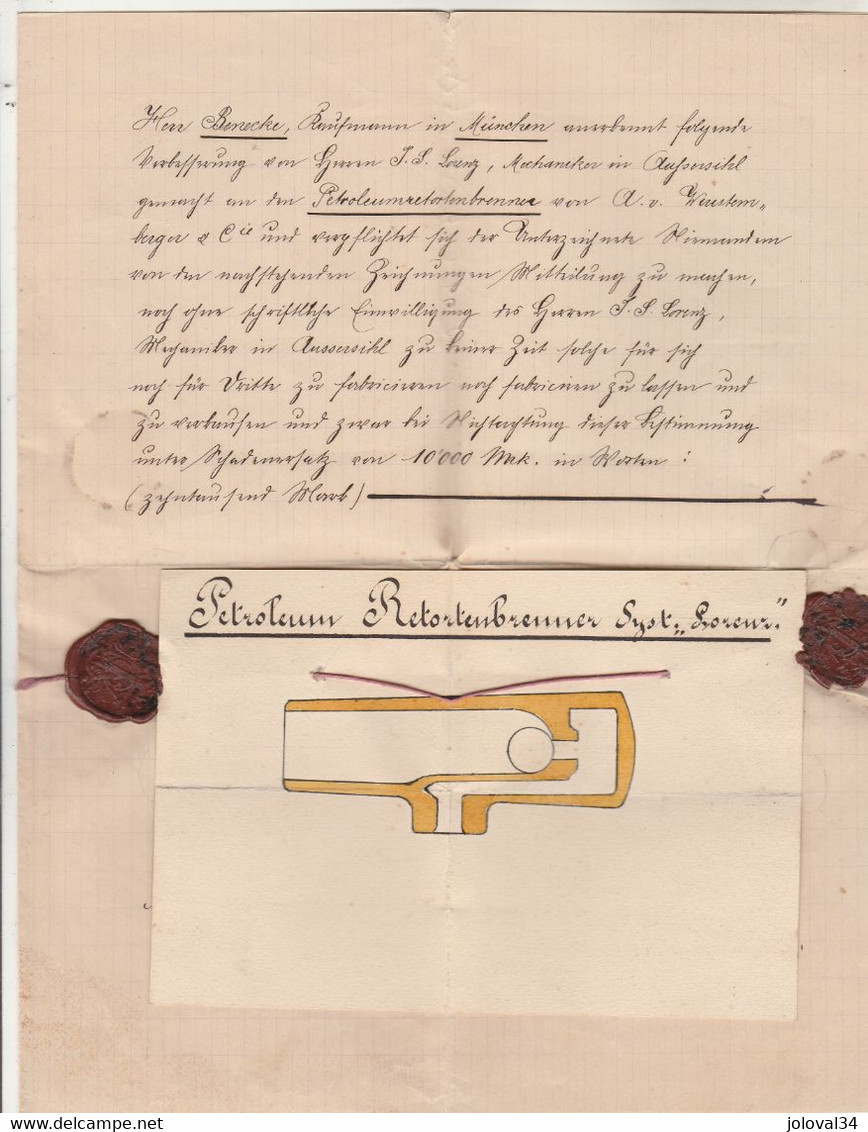 Herr Benecke, Kaufmann in München anerkennt folgende
Verbesserung von Herren J. S. Lorenz, Mechaniker in Aussersihl
gemacht an den Petroleumretortenbrenner von A. v. Wurstem„
berger & Cie und verpflichtet sich der Unterzeichnete Niemandem
von den nachstehenden Zeichnungen Mitteilung zu machen,
noch ohne schriftliche Einwilligung des Herren J. S. Lorenz,
Mechaniker in Aussersihl zu keiner Zeit solche für sich
noch für Dritte zu fabricieren noch fabriciren zu lassen und
zu verkaufen und zwar bei Nichtachtung dieser Bestimmung
unter Schadenersatz von 10'000 Mrk. in Worten :
(zehntausend Mark)
Petroleum Retortenbrenner Syst. „Lorenz"
www.delcampe.net
joloval34